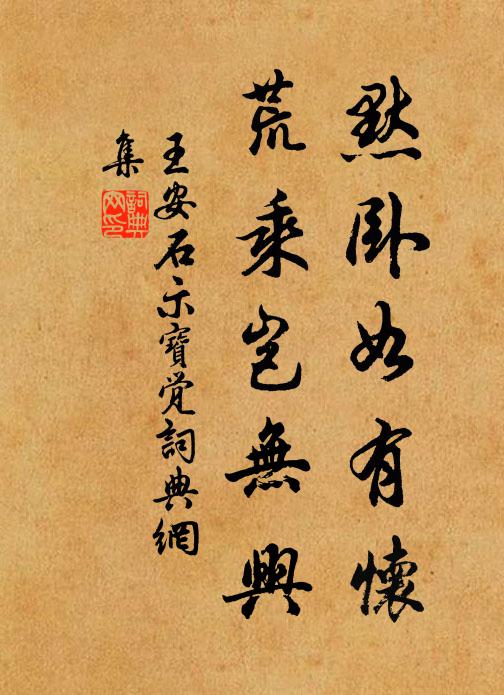 默卧如有懷
荒乘豈無興
王安石示寶覺詞典網
集
詞典網印